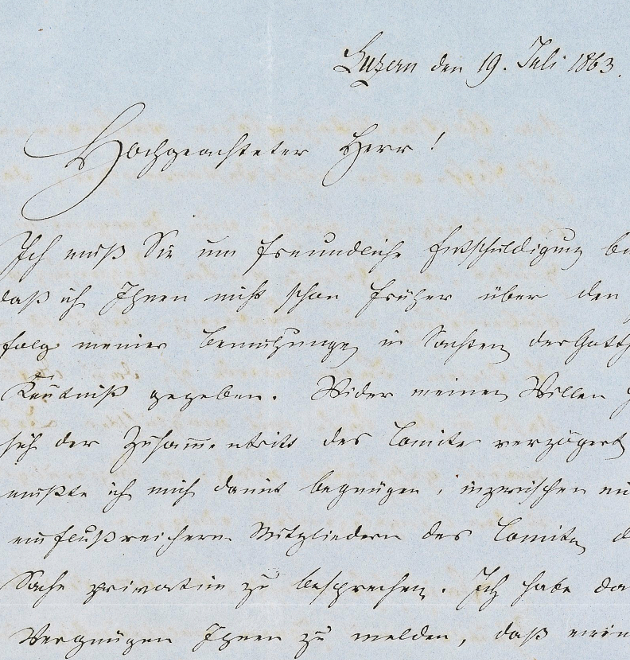 Luzern den 19. Juli 1863.
Hochgeachteter Herr!
Ich muß Sie um freundliche Entschuldigung
daß ich Ihnen nicht schon früher über den
folg meiner Bemühungen in Sachen der Gotth
Kentniß gegeben. Wider meinen Willen
sich der Zusammentritt des Comite verzögert
mußte ich mich damit begnügen, inzwischen mi
einflußreichern Mitgliedern des Comite d
Sache privatim zu besprechen. Ich habe da
Vergnügen Ihnen zu melden, daß mein